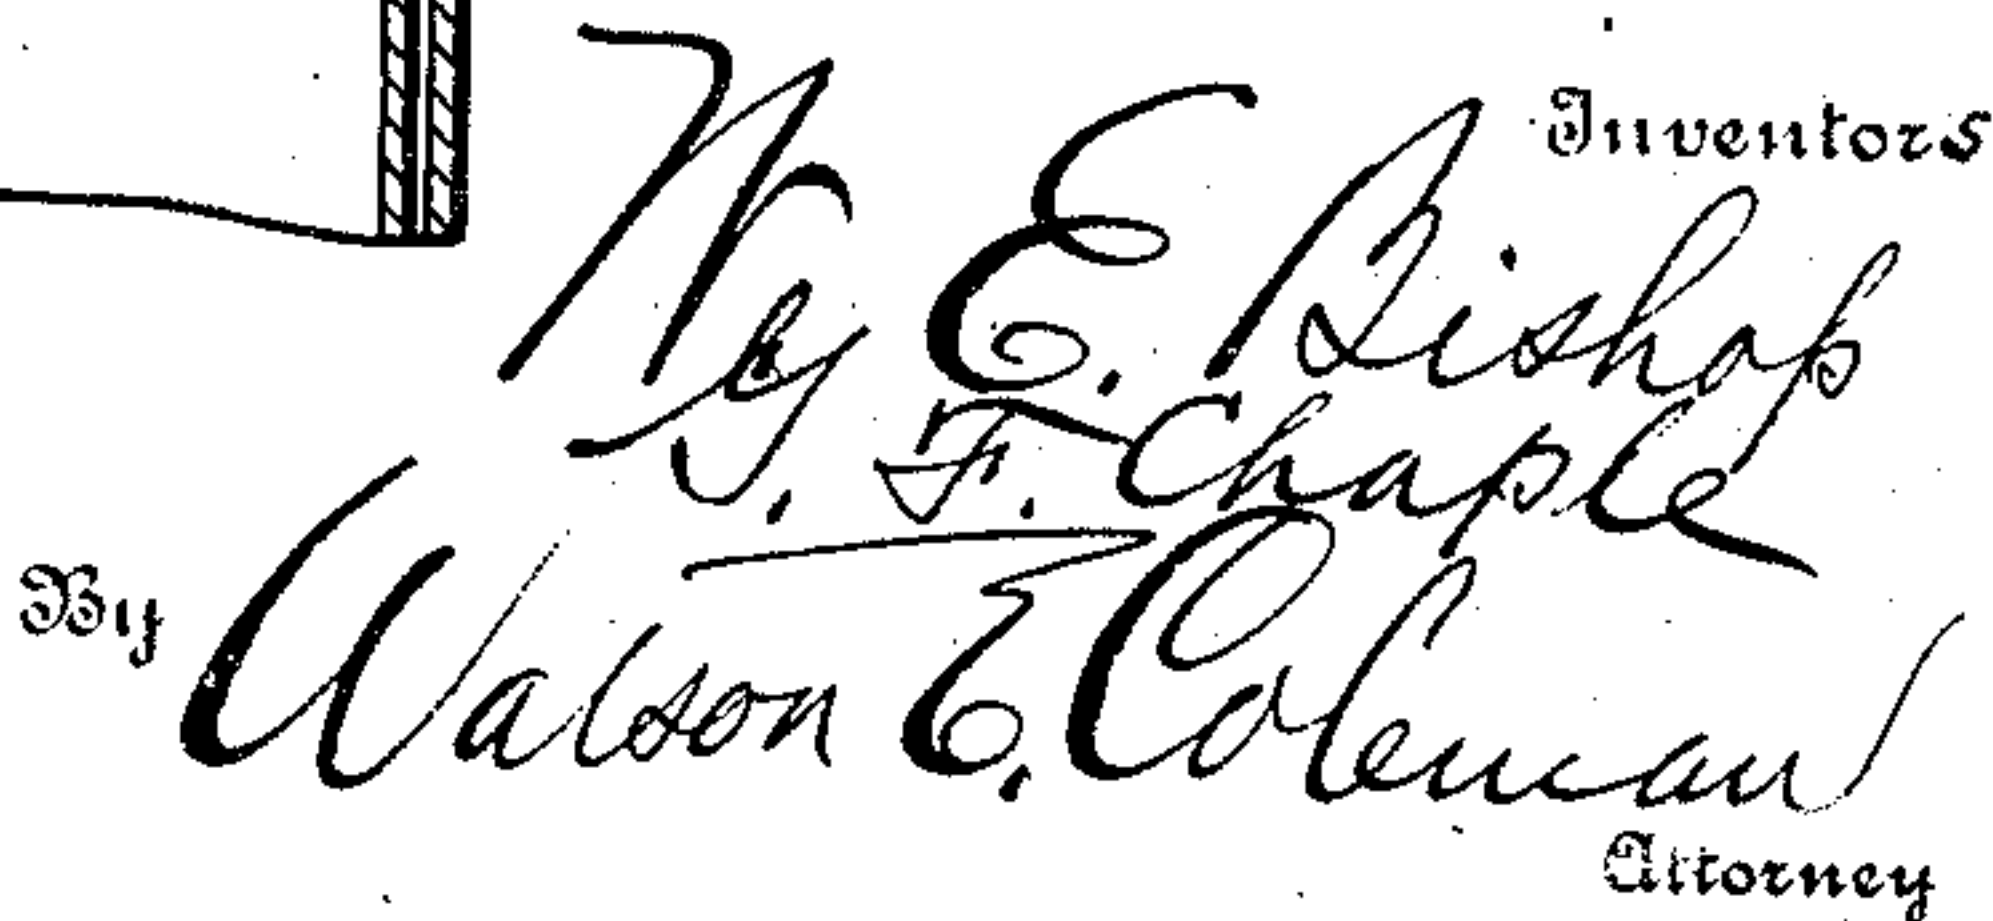 Inventors
N. E. Bishop
G. F. Chaple
By Watson E. Coleman
Attorney